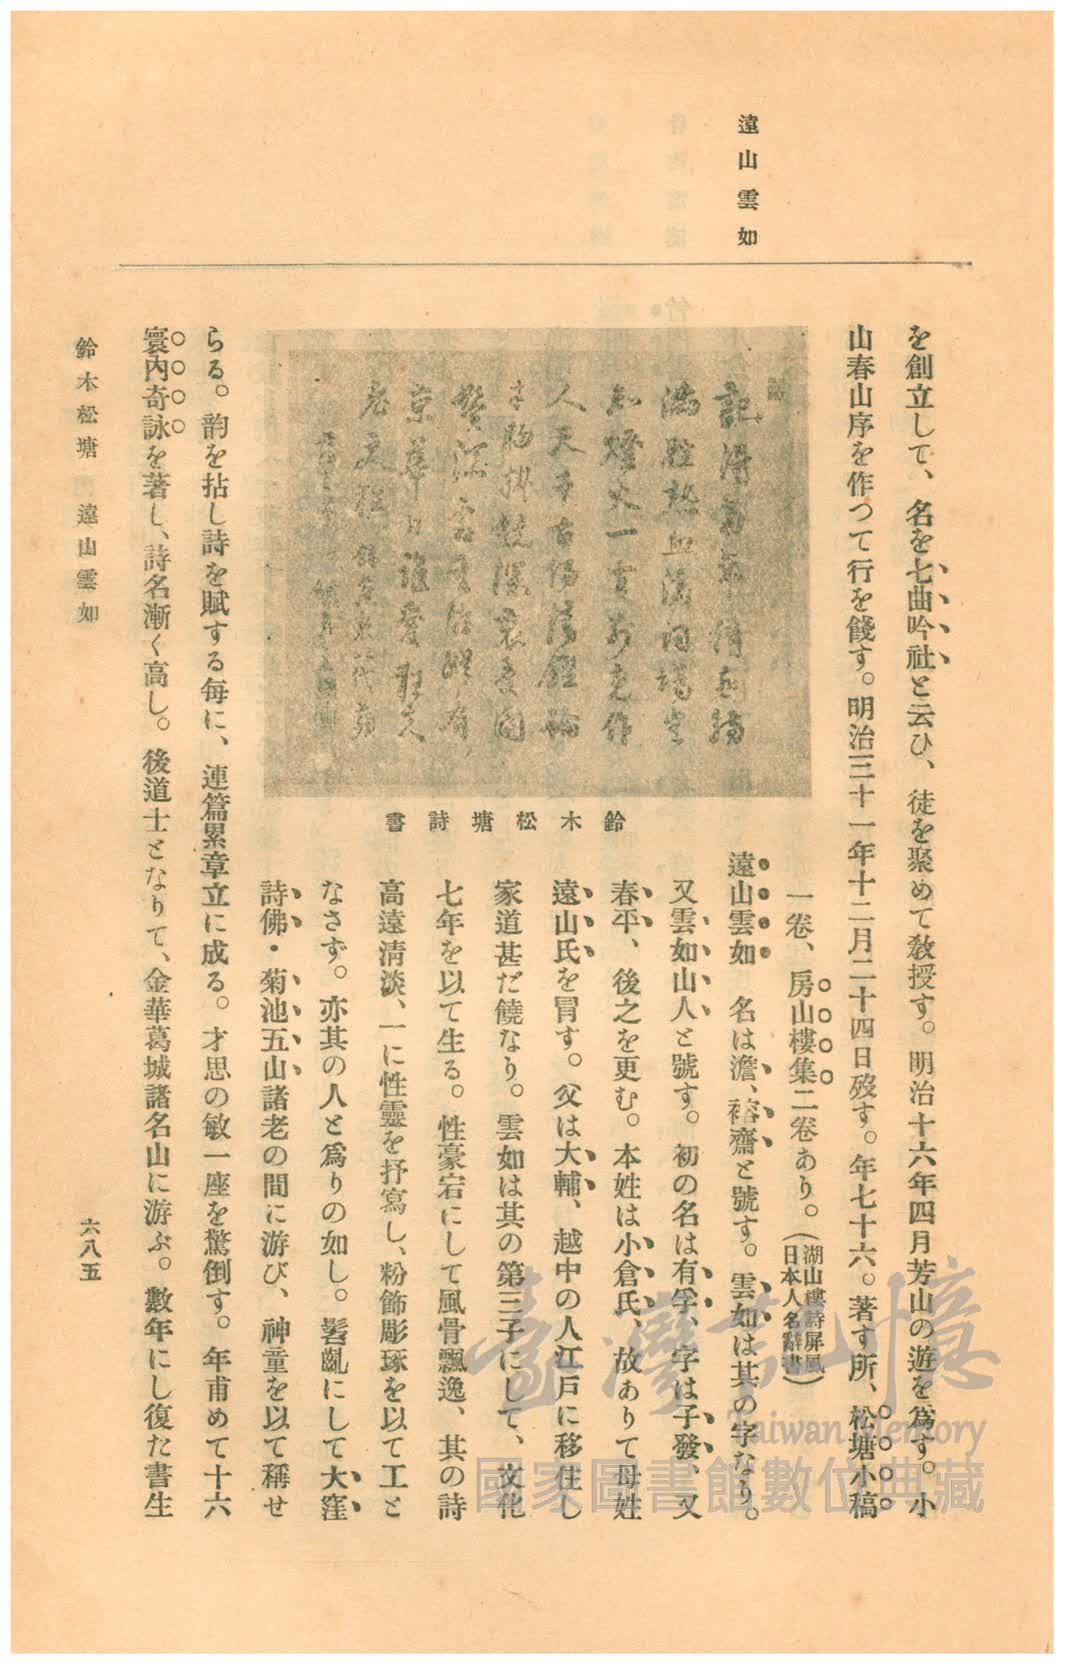 遠山雲如
を創立して、名を七曲吟社と云ひ、徒を聚めて教授す。明治十六年四月芳山の遊を爲す。小
山春山序を作つて行を餞す。明治三十一年十二月二十四日歿す。年七十六。著す所、松塘小稿
一卷、房山樓集二卷あり。(湖山樓詩屏風
日本人名辭書)
鈴木松塘詩書
遠山雲如　名は澹、裕齋と號す。雲如は其の字なり。
又雲如山人と號す。初の名は有孚、字は子發、又
春平、後之を更む。本姓は小倉氏、故ありて母姓
遠山氏を冐す。父は大輔、越中の人江戸に移住し
家道甚だ饒なり。雲如は其の第三子にして、文化
七年を以て生る。性豪宕にして風骨飄逸、其の詩
高遠淸淡、一に性靈を抒寫し、粉飾彫琢を以て工と
なさず。亦其の人と爲りの如し。髫齓にして大窪
詩佛・菊池五山諸老の間に游び、神童を以て稱せ
らる。韵を拈し詩を賦する每に、連篇累章立に成る。才思の敏一座を驚倒す。年甫めて十六
寰內奇詠を著し、詩名漸く高し。後道士となりて、金華葛城諸名山に游ぶ。數年にし復た書生
鈴木松塘　遠山雲如
六八五
臺灣記憶
Taiwan Memory
國家圖書館數位典藏